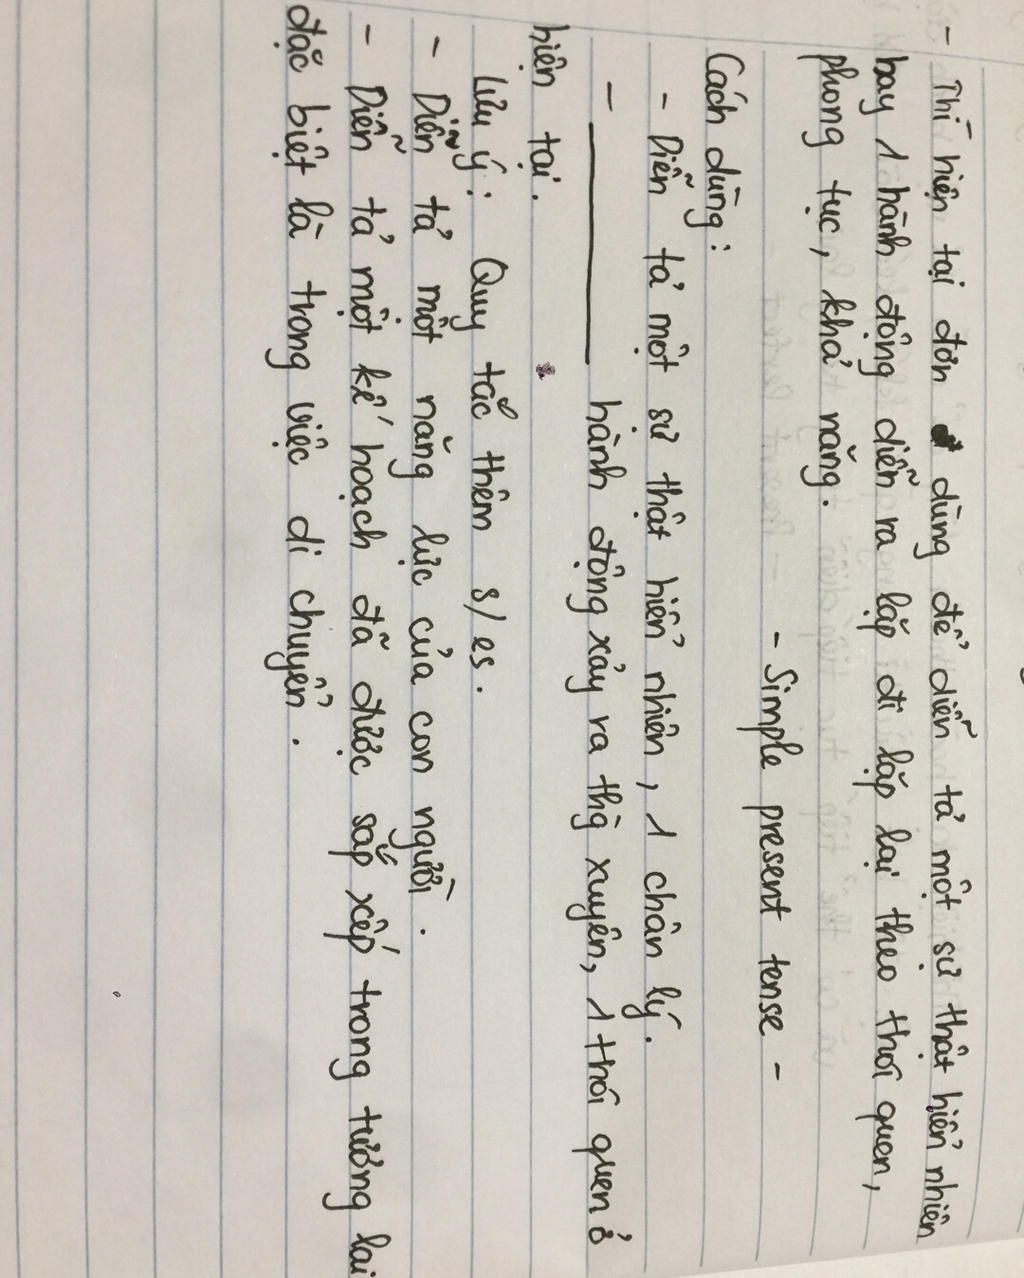 - Thì hiện tại đơn dùng để diễn tả một sự thật hiển nhiên
hay 1 hành động diễn ra lặp đi lặp lại theo thói quen,
phong tục, khả năng.
- Simple present tense -
Cách dùng:
- Diễn tả một sự thật hiển nhiên, 1 chân lý.
- ——— hành động xảy ra thg xuyên, 1 thói quen ở
hiện tại.
Lưu ý: Quy tắc thêm s/es.
- Diễn tả một năng lực của con người.
- Diễn tả một kế hoạch đã được sắp xếp trong tương lai
đặc biệt là trong việc di chuyển.